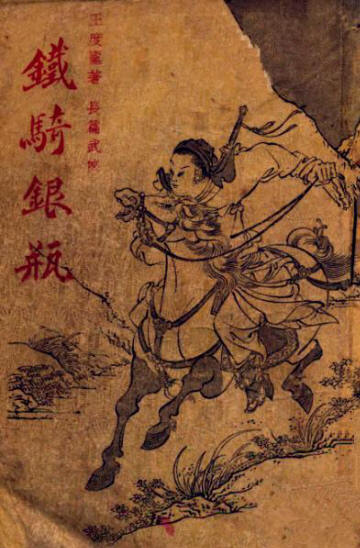 王度廬著 長篇武俠
鐵騎銀瓶